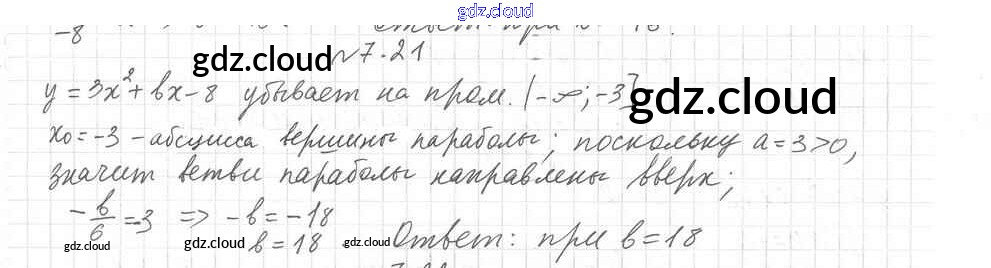 gdz.cloud
-8
Ответ: при
gdz.cloud №7.21
y = 3x² + bx - 8 убывает на пром. (-∞; -3] gdz.cloud
x₀ = -3 - абсцисса вершины параболы; поскольку a = 3 > 0,
значит ветви параболы направлены вверх;
-b/6 = -3 => -b = -18
gdz.cloud gdz.cloud b = 18 gdz.cloud Ответ: при b = 18